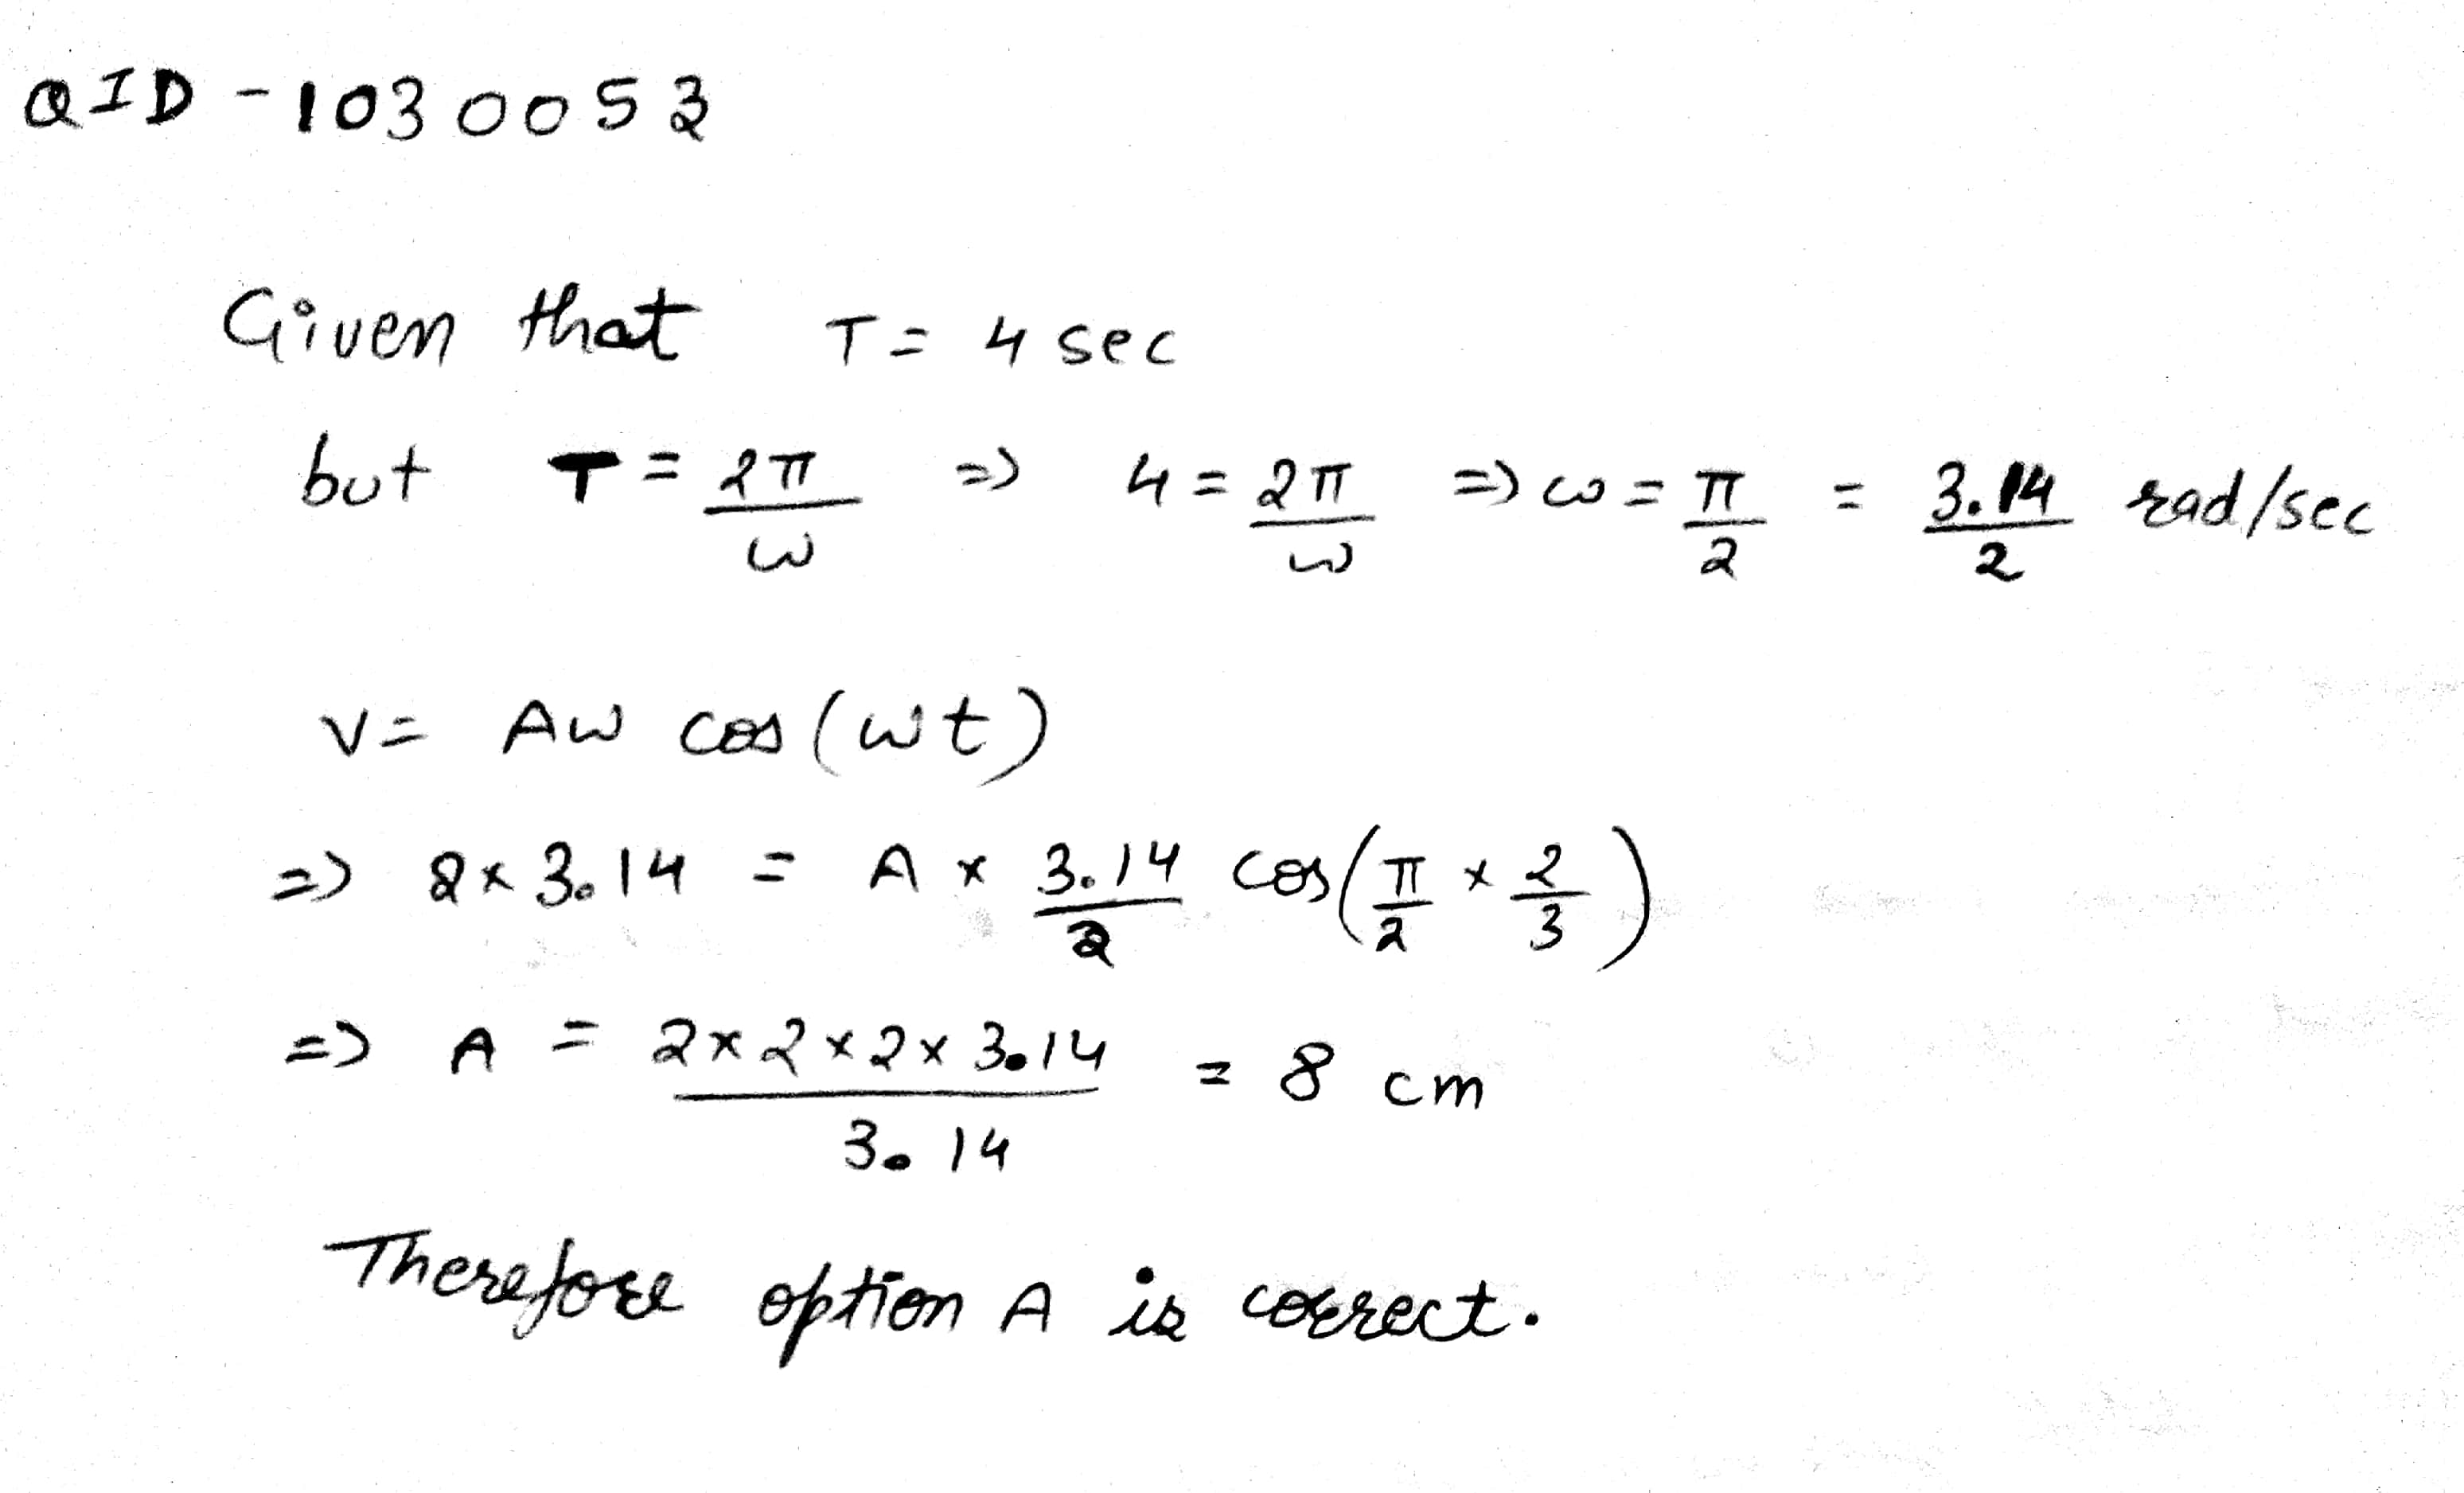 QID - 1030052
Given that T = 4 sec
but T = 2π/ω => 4 = 2π/ω => ω = π/2 = 3.14/2 rad/sec
V = Aω cos(ωt)
=> 2×3.14 = A × 3.14/2 cos(π/2 × 2/3)
=> A = 2×2×2×3.14/3.14 = 8 cm
Therefore option A is correct.